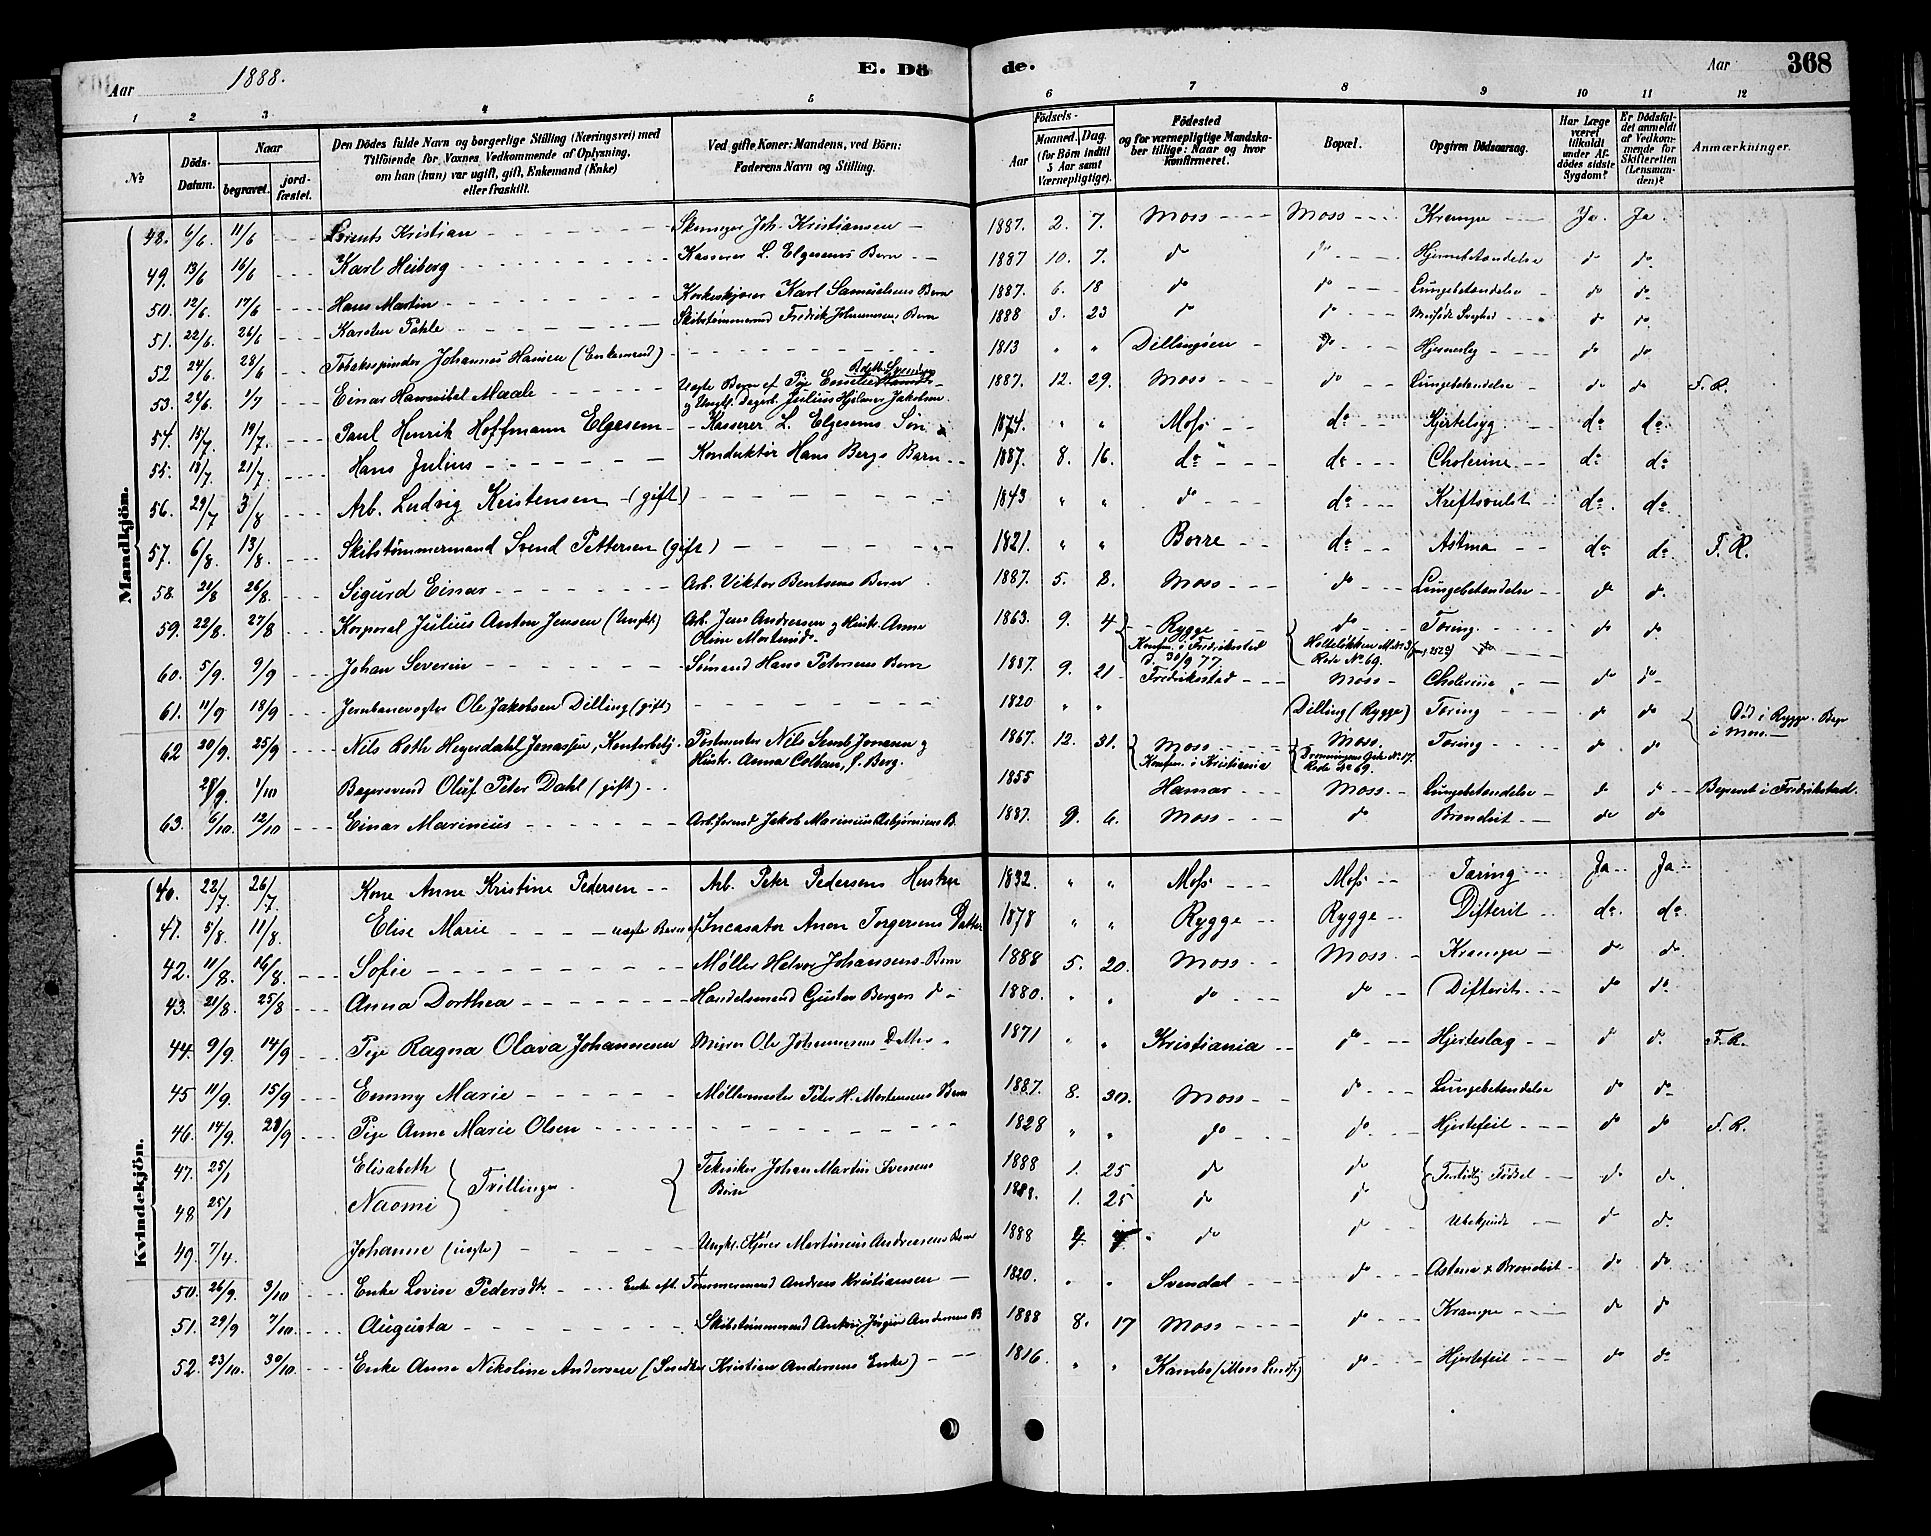 Aar 1888. E. Dö de. Aar 368
1 2 3 4 5 6 7 8 9 10 11 12
No
Döds-Datum.
Naar begravet. jordfæstet.
Den Dödes fulde Navn og borgerlige Stilling (Næringsvei) med Tilföiende for Voxnes Vedkommende af Oplysning, om han (hun) var ugift, gift, Enkemand (Enke) eller fraskilt.
Ved gifte Koner: Mandens, ved Börn: Faderens Navn og Stilling.
Födsels-
Aar Maaned. Dag. (for Börn indtil 5 Aar samt Værnepligtige).
Födested og for værnepligtige Mandskaber tillige: Naar og hvor konfirmeret.
Bopæl.
Opgiven Dödsaarsag.
Har Læge været tilkaldt under Afdödes sidste Sygdom?
Er Dödsfaldet anmeldt af Vedkommende for Skifteretten (Lensmanden)?
Anmærkninger.
Mandkjön.
48. 6/6 11/6 Lorents Kristian Joh. Kristiansen 1887. 2. 7. Moss Moss Krampe Ja. Ja
49. 13/6 16/6 Karl Heiberg Kasserer L. Elgesens Barn 1887 10. 7. do do Hjernebetændelse do do
50. 12/6 17/6 Hans Martin Karl Samuelsens Barn 1887. 6. 18 do do Lungebetændelse do do
51. 22/6. 26/6 Karsten Pahle Skibstømmermd Fredrik Johannesens Barn 1888 3. 23 do do do do
52 24/6. 28/6 Tobaksspinder Johannes Hansen (Enkemand) 1813 " " Dillingöen do Hjerneslag do do
53. 24/6. 1/7 Einar Hannibal Maale Uægte Barn af Pige Emilie & Ungk. Dagarb. Julius Hjalmar Jakobsen 1887. 12. 29. Moss do Lungebetændelse do do F. R.
54. 15/7 19/7. Paul Henrik Hoffmann Elgesem Kasserer L. Elgesems Søn 1874. " " Moss do Hjertesyg do. do.
55. 18/7. 21/7. Hans Julius Konduktør Hans Bergs Barn 1887. 8. 16. do do Cholerine do do
56. 29/7 3/8 Arb. Ludvig Kristensen (gift) 1843 " " do do Kræftsvulst do. do
57. 6/8 13/8. Skibstømmermand Svend Pettersen (gift) 1821. " " Borre do Astma do do F. R.
58. 20/8 26/8. Sigurd Einar Arb. Viktor Bentsens Barn 1887. 5. 8. Moss do Lungebetændelse do do
59. 22/8. 27/8 Korporal Julius Anton Jensen (Ungkl) Arb. Jens Andreasen og Hustr. Anne Oline Mortensd. 1863. 9. 4 Rygge Konfirm. i Fredrikstad d. 30/9 77. do Rode No 69. Tæring do do
60. 5/9. 9/9 Johan Severin Sømand Hans Petersens Barn 1887. 9. 21 Fredrikstad Moss Cholerine do do
61. 11/9 18/9 Jernbanevogter Ole Jakobsen Dilling (gift) 1820 " " Dilling (Rygge) Tæring do do Død i Rygge. Begr. i Moss.
62 20/9. 25/9 Nils Roth Heyerdahl Jonassen, Kontorbetj. Postmester Nils Semb Jonassen og Hustr. Anna Colban, f. Berg. 1867. 12. 31. Moss Konfirm. i Kristiania Moss Dronningens Gade No 17. Rode No 69. Tæring do do
28/9. 1/10 Bagersvend Oluf Peter Dahl (gift) 1855 Hamar Moss Lungebetændelse do do Begravet i Fredrikstad.
63. 6/10 12/10 Einar Marinius Jakob Marinius Asbjørnsens B. 1887. 9. 6. Moss do Bronchit do do
Kvindekjön.
40. 22/7 26/7. Kone Anne Kristine Pedersen Arb. Peter Pedersens Hustru 1832. " " Moss Moss Tæring Ja Ja
41. 5/8. 11/8. Elise Marie uægte Barn af Incasator Anon Torgersens Datter 1878 " " Rygge Rygge Difterit do. do.
42. 11/8. 16/8. Sofie Møller Halvor Johansens Barn 1888 5. 20. Moss Moss Krampe do do
43. 21/8. 25/8 Anna Dorthea Handelsmand Gustav Bergers do 1880. " " do do Difterit do do
44. 9/9. 14/9 Pige Ragna Olava Johannesen Murer Ole Johannesens Datter 1871 " " Kristiania do Hjerteslag do do F. R.
45 11/9. 15/9 Emmy Marie Møllermester Peter H. Mortensens Barn 1887. 8. 30. Moss do Lungebetændelse do do
46. 14/9. 20/9 Pige Anne Marie Olsen 1828 " " do do Hjertefeil do do F. R.
47. 25/1 Elisabeth } Tvillinger { Tekniker Johan Martin Svensens Børn 1888 1. 25 do do Fortidlig Fødsel do do
48 25/1 Naomi 1888. 1. 25 do do do do
49. 7/4. Johanne (uægte) Ungk. Kjører Martinius Andreasens Barn 1888 4. 7. do do Ubekjendt do do
50. 26/9. 3/10 Enke Lovise Pedersdtr. Enke eft. Tømmermand Andreas Kristiansen 1820. " " Svendal do Astma & Bronchit do do
51. 29/9 7/10. Augusta Skibstømmermd Anton Jørgen Andersens B 1888 8. 17 Moss do Krampe do do
52. 23/10. 30/10. Enke Anne Nikoline Andersen (Smedker Kristian Andersens Enke) 1816. " " Kambo (Moss Landsg) do Hjertefeil do do